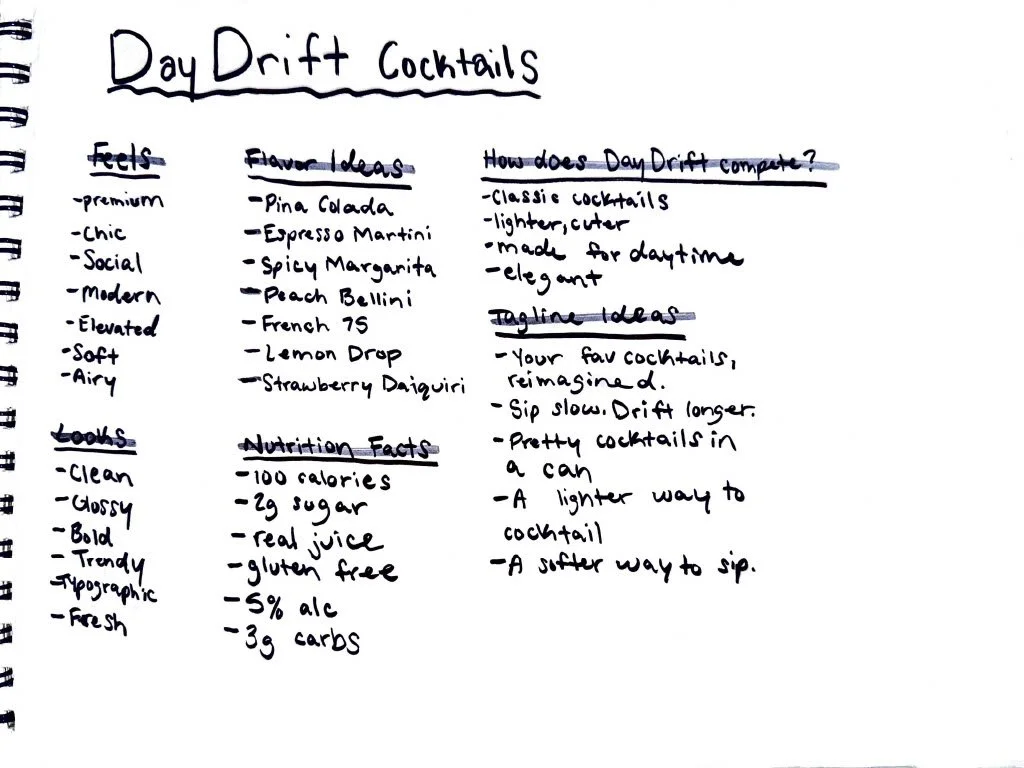 Day Drift Cocktails
Feels
-premium
-Chic
-Social
-Modern
-Elevated
-Soft
-Airy
Looks
-Clean
-Glossy
-Bold
-Trendy
-Typographic
-Fresh
Flavor Ideas
-Pina Colada
-Espresso Martini
-Spicy Margarita
-Peach Bellini
-French 75
-Lemon Drop
-Strawberry Daiquiri
Nutrition Facts
-100 calories
-2g sugar
-real juice
-gluten free
-5% alc
-3g carbs
How does Day Drift compete?
-Classic cocktails
-lighter, cuter
-made for daytime
-elegant
Tagline Ideas
-Your fav cocktails,
reimagined.
-Sip slow. Drift longer.
-Pretty cocktails in
a can
-A lighter way to
cocktail
-A softer way to sip.